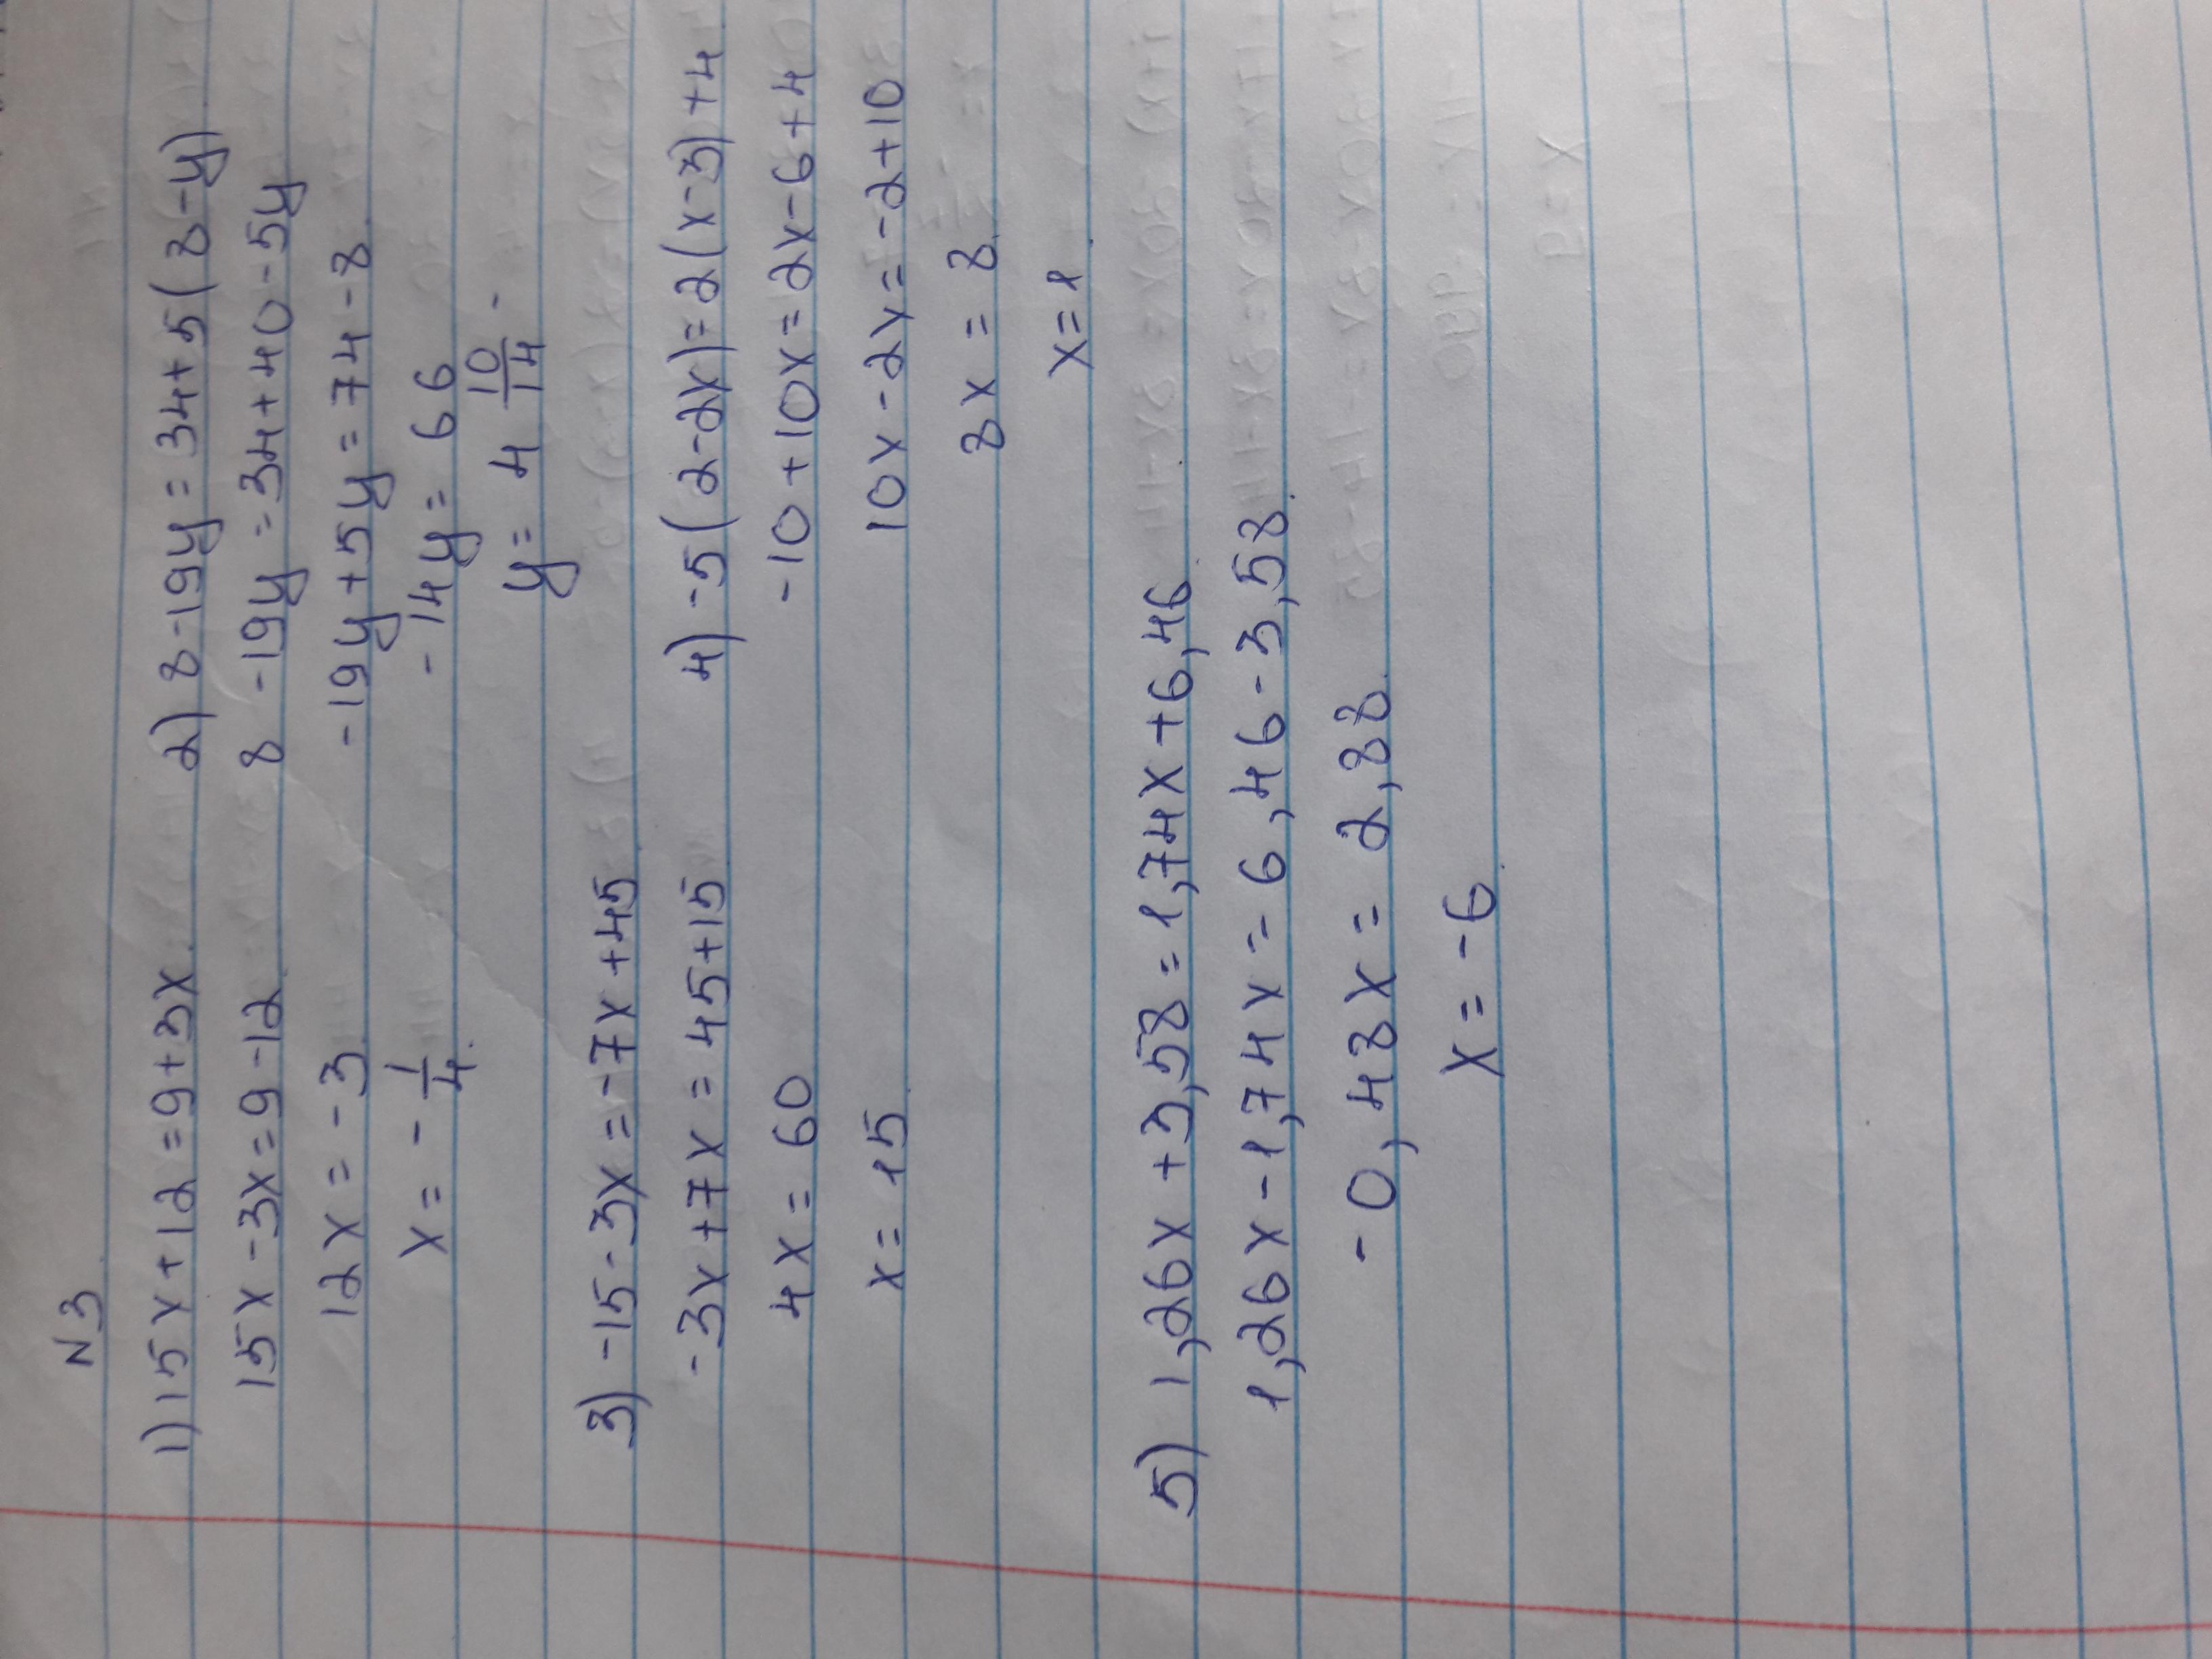 N3
1) 15x+12=9+3x
15x-3x=9-12
12x=-3
x=-1/4.
2) 8-19y=34+5(8-y)
8-19y=34+40-5y
-19y+5y=74-8
-14y=66
y=4 10/14
3) -15-3x=-7x+45
-3x+7x=45+15
4x=60
x=15
4) -5(2-2x)=2(x-3)+4
-10+10x=2x-6+4
10x-2x=-2+10
8x=8
x=1
5) 1,26x+3,58=1,74x+6,46
1,26x-1,74x=6,46-3,58
-0,48x=2,88
x=-6